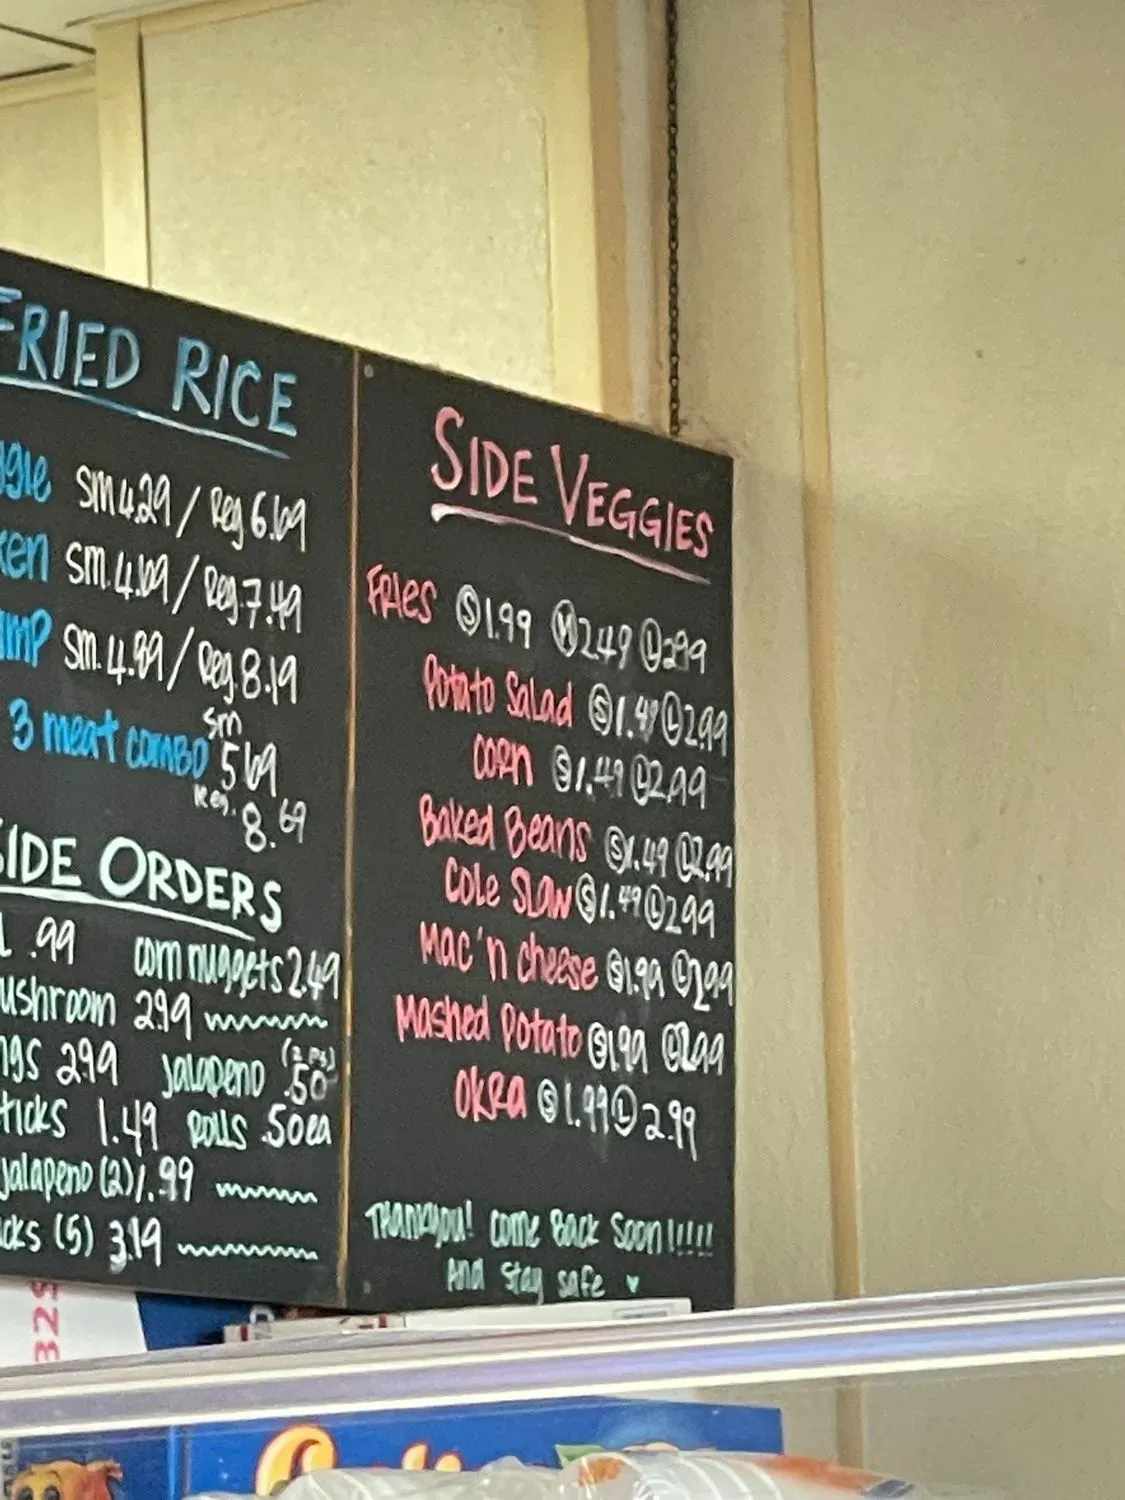 FRIED RICE
Sm 4.29 / Reg 6.69
Sm. 4.69 / Reg. 7.49
Sm. 4.89 / Reg. 8.19
3 meat combo sm 5.69
Reg. 8.69
SIDE ORDERS
.99 corn nuggets 2.49
2.99
2.99 Jalapeno (2 pcs) .50
1.49 Rolls .50ea
Jalapeno (2) 1.99
(5) 3.19
SIDE VEGGIES
FRIES S 1.99 M 2.49 L 2.99
Potato Salad S 1.49 L 2.99
CORN S 1.49 L 2.99
Baked Beans S 1.49 L 2.99
Cole Slaw S 1.49 L 2.99
Mac'n cheese S 1.99 L 2.99
Mashed Potato S 1.99 L 2.99
OKRA S 1.99 L 2.99
THANKYOU! Come Back Soon!!!!!
And stay safe
325